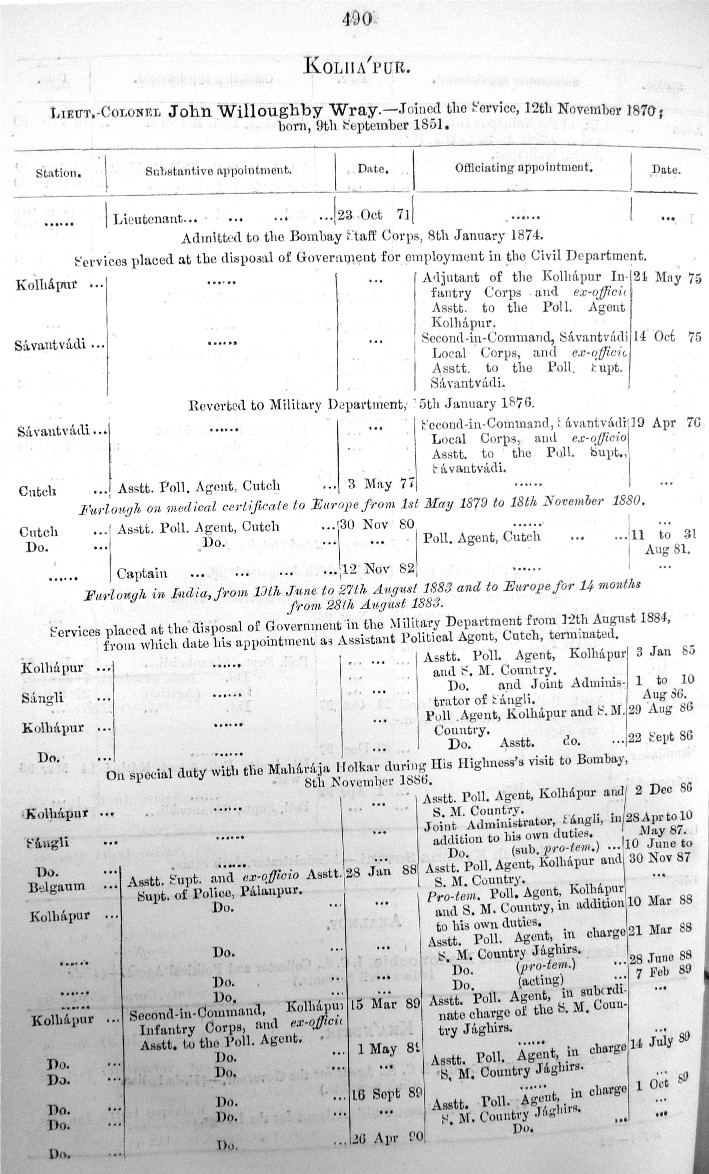 490
KOLHA'PUR.
LIEUT.-COLONEL John Willoughby Wray.—Joined the Service, 12th November 1870;
born, 9th September 1851.
Station. Substantive appointment. Date. Officiating appointment. Date.
...... Lieutenant... ... ... ... 23 Oct 71 ...... ...
Admitted to the Bombay Staff Corps, 8th January 1874.
Services placed at the disposal of Government for employment in the Civil Department.
Kolhápur ... ...... ... Adjutant of the Kolhápur In- 24 May 75
fantry Corps and ex-officio
Asstt. to the Poll. Agent
Kolhápur.
Sávantvádi ... ...... ... Second-in-Command, Sávantvádi 14 Oct 75
Local Corps, and ex-officio
Asstt. to the Poll. Supt.
Sávantvádi.
Reverted to Military Department, 15th January 1876.
Sávantvádi ... ...... ... Second-in-Command, Sávantvádi 19 Apr 76
Local Corps, and ex-officio
Asstt. to the Poll. Supt.,
Sávantvádi.
Cutch ... Asstt. Poll. Agent, Cutch ... 3 May 77 ...... ...
Furlough on medical certificate to Europe from 1st May 1879 to 18th November 1880.
Cutch ... Asstt. Poll. Agent, Cutch ... 30 Nov 80 ...... ...
Do. ... Do. ... Poll. Agent, Cutch ... ... 11 to 31
Aug 81.
...... Captain ... ... ... ... 12 Nov 82 ...... ...
Furlough in India, from 19th June to 27th August 1883 and to Europe for 14 months
from 28th August 1883.
Services placed at the disposal of Government in the Military Department from 12th August 1884,
from which date his appointment as Assistant Political Agent, Cutch, terminated.
Kolhápur ... ...... ... ... Asstt. Poll. Agent, Kolhápur 3 Jan 85
and S. M. Country.
Sángli ... ...... ... ... Do. and Joint Adminis- 1 to 10
trator of Sángli. Aug 86.
Kolhápur ... ...... ... Poll. Agent, Kolhápur and S. M. 29 Aug 86
Country.
Do. ... ...... ... Do. Asstt. do. ... 22 Sept 86
On special duty with the Mahárája Holkar during His Highness's visit to Bombay,
8th November 1886.
Kolhápur ... ...... ... Asstt. Poll. Agent, Kolhápur and 2 Dec 86
S. M. Country.
Sángli ... ...... ... Joint Administrator, Sángli, in 28 Apr to 10
addition to his own duties. May 87.
Do. ... ...... ... Do. (sub. pro-tem.) ... 10 June to
Belgaum ... Asstt. Supt. and ex-officio Asstt. 28 Jan 88 Asstt. Poll. Agent, Kolhápur and 30 Nov 87
Supt. of Police, Pálanpur. S. M. Country. ...
Kolhápur ... Do. ... ... Pro-tem. Poll. Agent, Kolhápur
and S. M. Country, in addition 10 Mar 88
to his own duties.
...... Do. ... ... Asstt. Poll. Agent, in charge 21 Mar 88
S. M. Country Jághirs.
...... Do. ... ... Do. (pro-tem.) ... 28 June 88
...... Do. ... ... Do. (acting) ... 7 Feb 89
Kolhápur ... Second-in-Command, Kolhápur 15 Mar 89 Asstt. Poll. Agent, in subordi- ...
Infantry Corps, and ex-officio nate charge of the S. M. Coun-
Asstt. to the Poll. Agent. try Jághirs.
Do. ... Do. ... 1 May 89 ......
Do. ... Do. ... ... Asstt. Poll. Agent, in charge 14 July 89
S. M. Country Jághirs.
Do. ... Do. ... 16 Sept 89 ......
Do. ... Do. ... ... Asstt. Poll. Agent, in charge 1 Oct 89
S. M. Country Jághirs.
Do. ... Do. ... 26 Apr 90 Do. ... ...